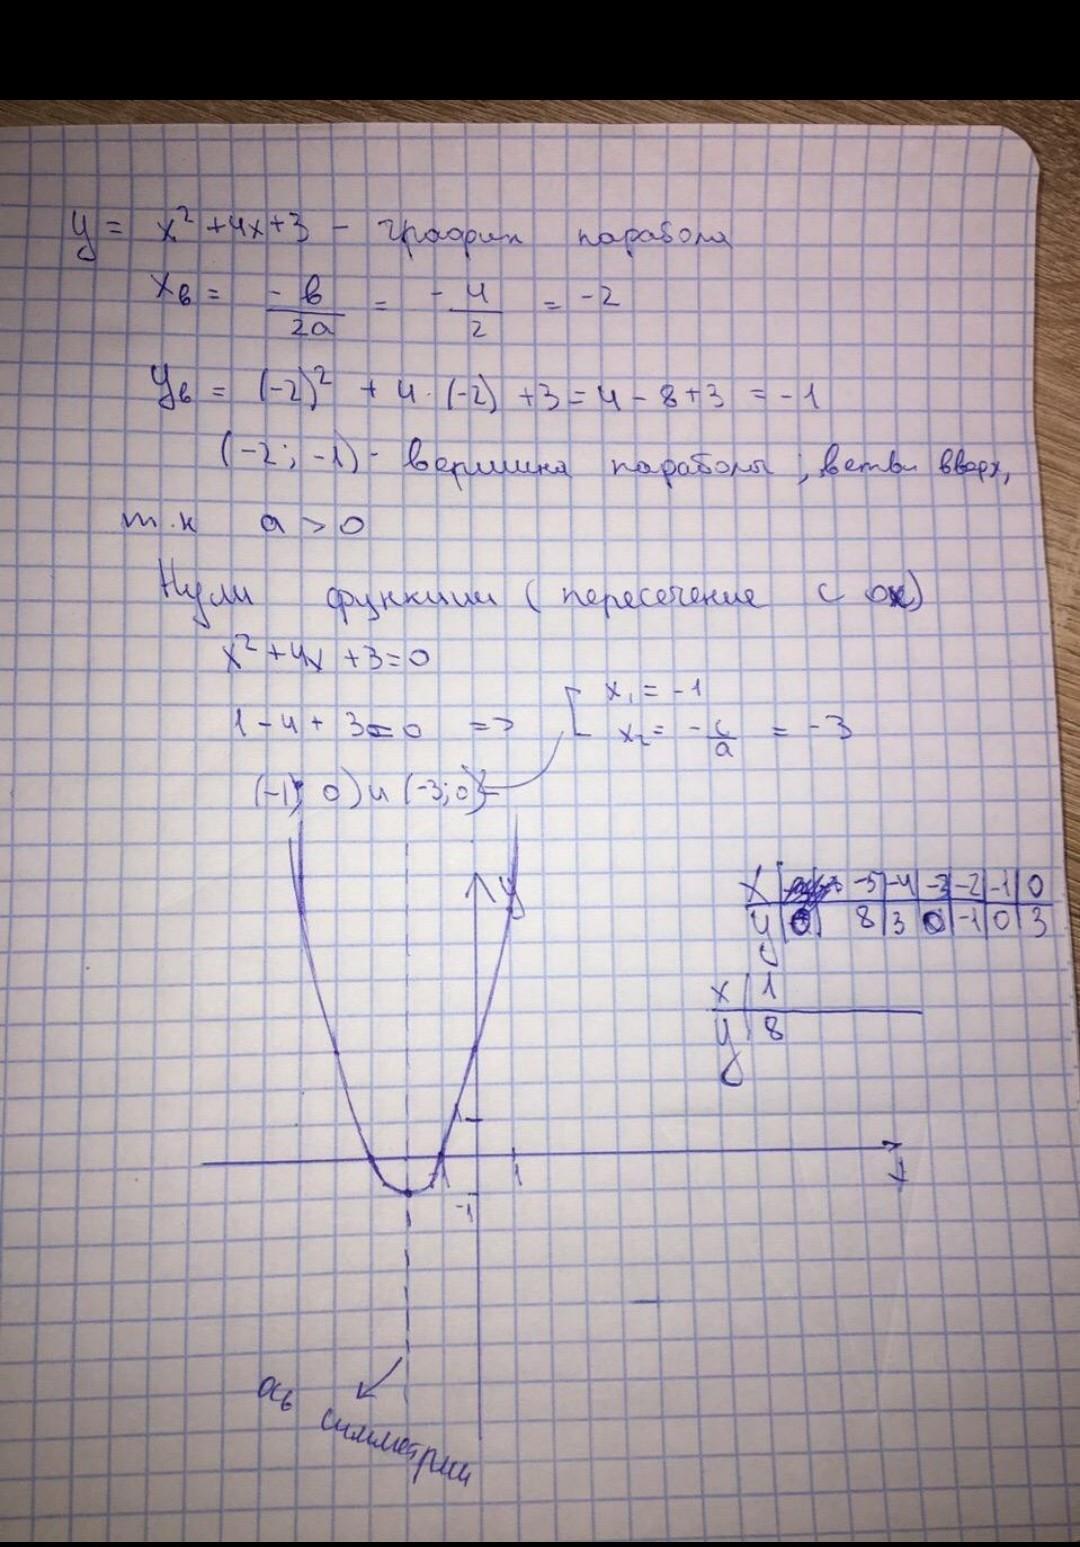 y = x² + 4x + 3 - график парабола
xв = -в/2a = -4/2 = -2
yв = (-2)² + 4·(-2) + 3 = 4 - 8 + 3 = -1
(-2; -1) - вершина параболы; ветви вверх,
т.к a > 0
Нули функции (пересечение с ox)
x² + 4x + 3 = 0
1 - 4 + 3 = 0 => [ x₁ = -1
x₂ = -c/a = -3
(-1; 0) и (-3; 0)
y
x | -5 | -4 | -3 | -2 | -1 | 0
y | 8 | 3 | 0 | -1 | 0 | 3
x | 1
y | 8
1
-1 1
-1
x
ось
симметрии